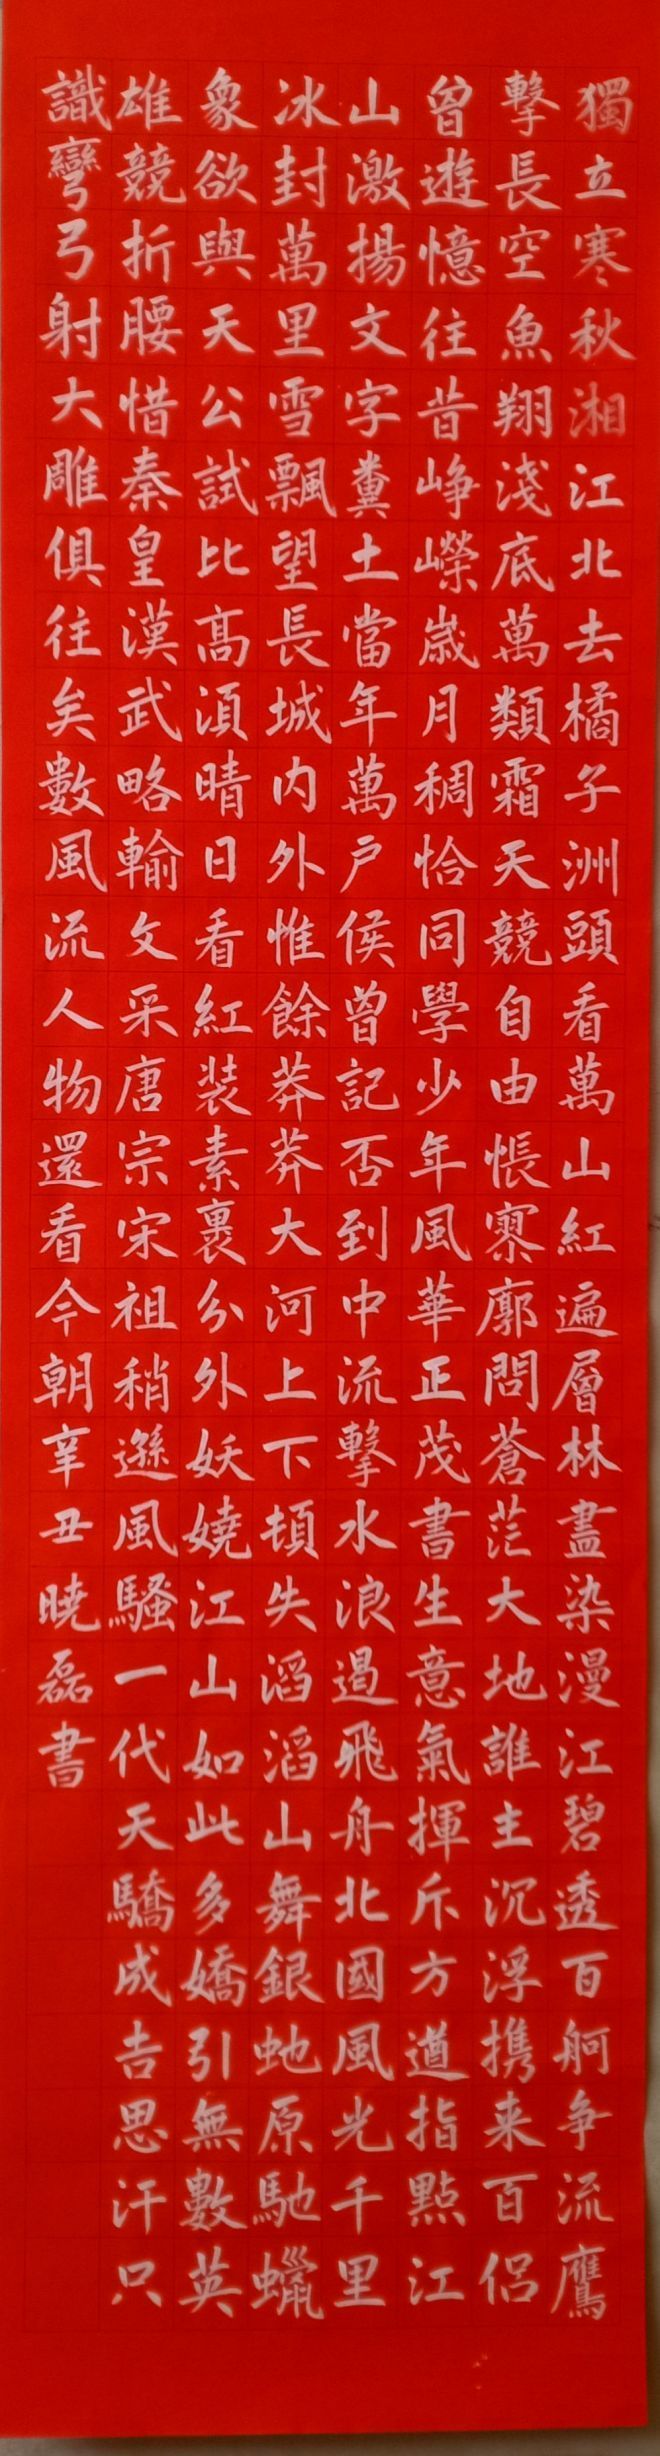 獨立寒秋湘江北去橘子洲頭看萬山紅遍層林盡染漫江碧透百舸争流鷹
擊長空魚翔淺底萬類霜天競自由悵寥廓問蒼茫大地誰主沉浮携来百侣
曾遊憶往昔崢嶸歲月稠恰同學少年風華正茂書生意氣揮斥方遒指點江
山激揚文字糞土當年萬户侯曾記否到中流擊水浪遏飛舟北國風光千里
冰封萬里雪飄望長城内外惟餘莽莽大河上下頓失滔滔山舞銀虵原馳蠟
象欲與天公試比髙須晴日看紅装素裹分外妖嬈江山如此多嬌引無數英
雄競折腰惜秦皇漢武略輸文采唐宗宋祖稍遜風騷一代天驕成吉思汗只
識彎弓射大雕俱往矣數風流人物還看今朝辛丑曉磊書